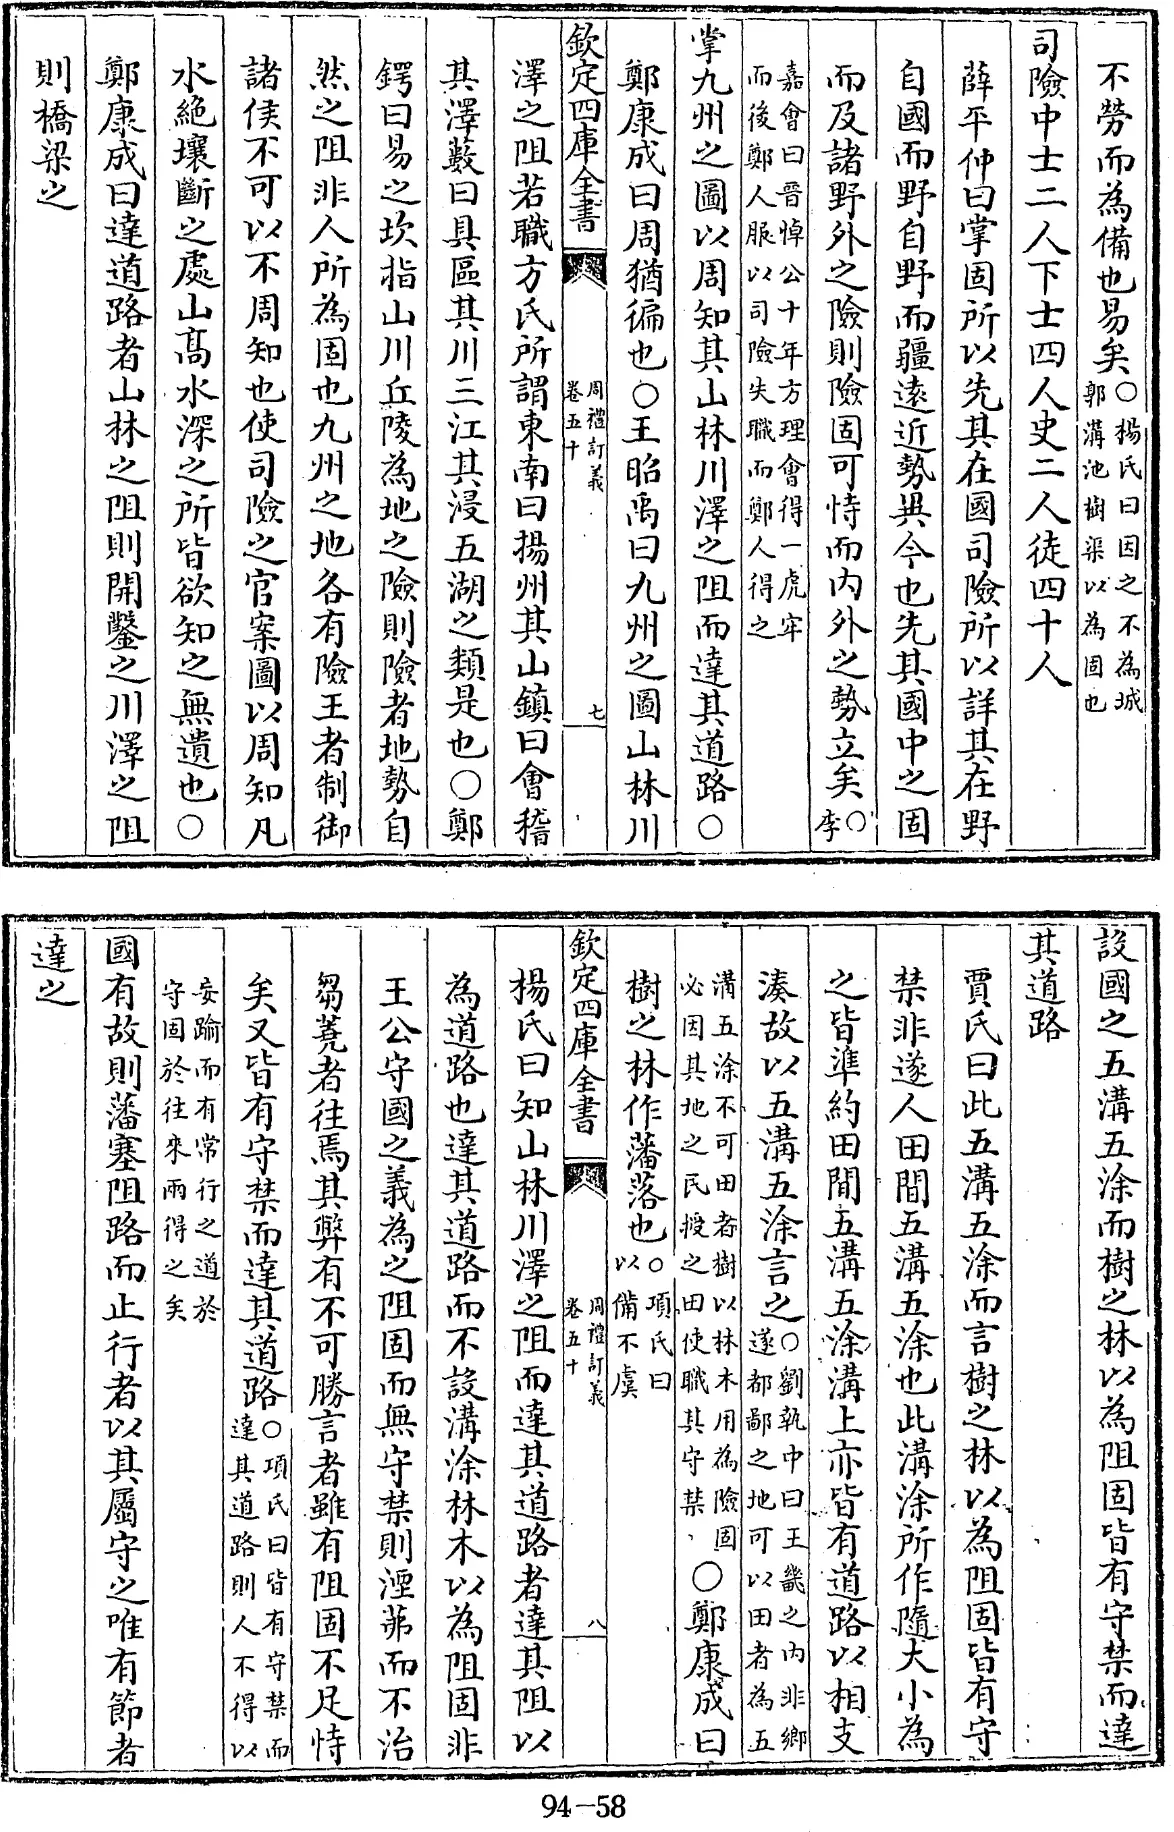 不勞而為備也易矣○楊氏曰因之不為城郭溝池樹渠以為固也
司險中士二人下士四人史二人徒四十人
薛平仲曰掌固所以先其在國司險所以詳其在野
自國而野自野而疆遠近勢異今也先其國中之固
而及諸野外之險則險固可恃而内外之勢立矣○李
嘉會曰晉悼公十年方理會得一虎牢而後鄭人服以司險失職而鄭人得之
掌九州之圖以周知其山林川澤之阻而達其道路○
鄭康成曰周猶徧也○王昭禹曰九州之圖山林川
欽定四庫全書 周禮訂義卷五十 七
澤之阻若職方氏所謂東南曰揚州其山鎮曰會稽
其澤藪曰具區其川三江其浸五湖之類是也○鄭
鍔曰易之坎指山川丘陵為地之險則險者地勢自
然之阻非人所為固也九州之地各有險王者制御
諸侯不可以不周知也使司險之官案圖以周知凡
水絶壤斷之處山高水深之所皆欲知之無遺也○
鄭康成曰達道路者山林之阻則開鑿之川澤之阻
則橋梁之
設國之五溝五涂而樹之林以為阻固皆有守禁而達
其道路
賈氏曰此五溝五涂而言樹之林以為阻固皆有守
禁非遂人田間五溝五涂也此溝涂所作隨大小為
之皆準約田間五溝五涂溝上亦皆有道路以相支
湊故以五溝五涂言之○劉執中曰王畿之内非鄉遂都鄙之地可以田者為五
溝五涂不可田者樹以林木用為險固必因其地之民授之田使職其守禁○鄭康成曰
樹之林作藩落也○項氏曰以備不虞
欽定四庫全書 周禮訂義卷五十 八
楊氏曰知山林川澤之阻而達其道路者達其阻以
為道路也達其道路而不設溝涂林木以為阻固非
王公守國之義為之阻固而無守禁則湮茀而不治
芻蕘者往焉其弊有不可勝言者雖有阻固不足恃
矣又皆有守禁而達其道路○項氏曰皆有守禁而達其道路則人不得以
妄踰而有常行之道於守固於往來兩得之矣
國有故則藩塞阻路而止行者以其屬守之唯有節者
達之
94-58